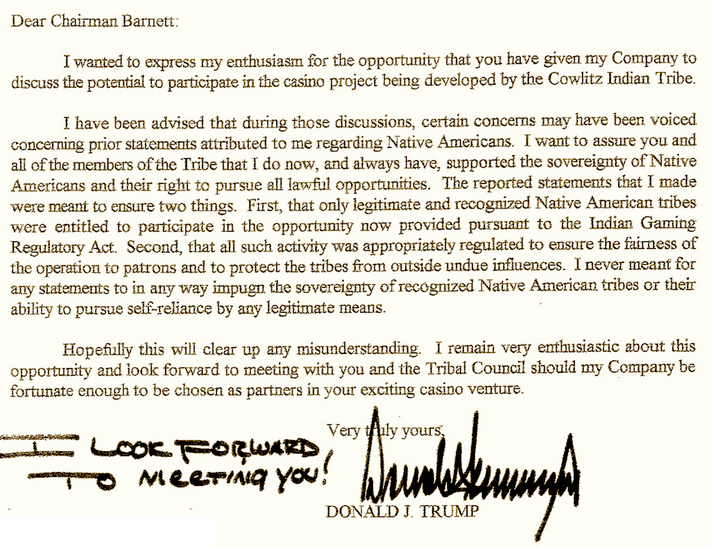 Dear Chairman Barnett:
I wanted to express my enthusiasm for the opportunity that you have given my Company to
discuss the potential to participate in the casino project being developed by the Cowlitz Indian Tribe.
I have been advised that during those discussions, certain concerns may have been voiced
concerning prior statements attributed to me regarding Native Americans. I want to assure you and
all of the members of the Tribe that I do now, and always have, supported the sovereignty of Native
Americans and their right to pursue all lawful opportunities. The reported statements that I made
were meant to ensure two things. First, that only legitimate and recognized Native American tribes
were entitled to participate in the opportunity now provided pursuant to the Indian Gaming
Regulatory Act. Second, that all such activity was appropriately regulated to ensure the fairness of
the operation to patrons and to protect the tribes from outside undue influences. I never meant for
any statements to in any way impugn the sovereignty of recognized Native American tribes or their
ability to pursue self-reliance by any legitimate means.
Hopefully this will clear up any misunderstanding. I remain very enthusiastic about this
opportunity and look forward to meeting with you and the Tribal Council should my Company be
fortunate enough to be chosen as partners in your exciting casino venture.
Very truly yours,
I LOOK FORWARD
TO MEETING YOU!
DONALD J. TRUMP